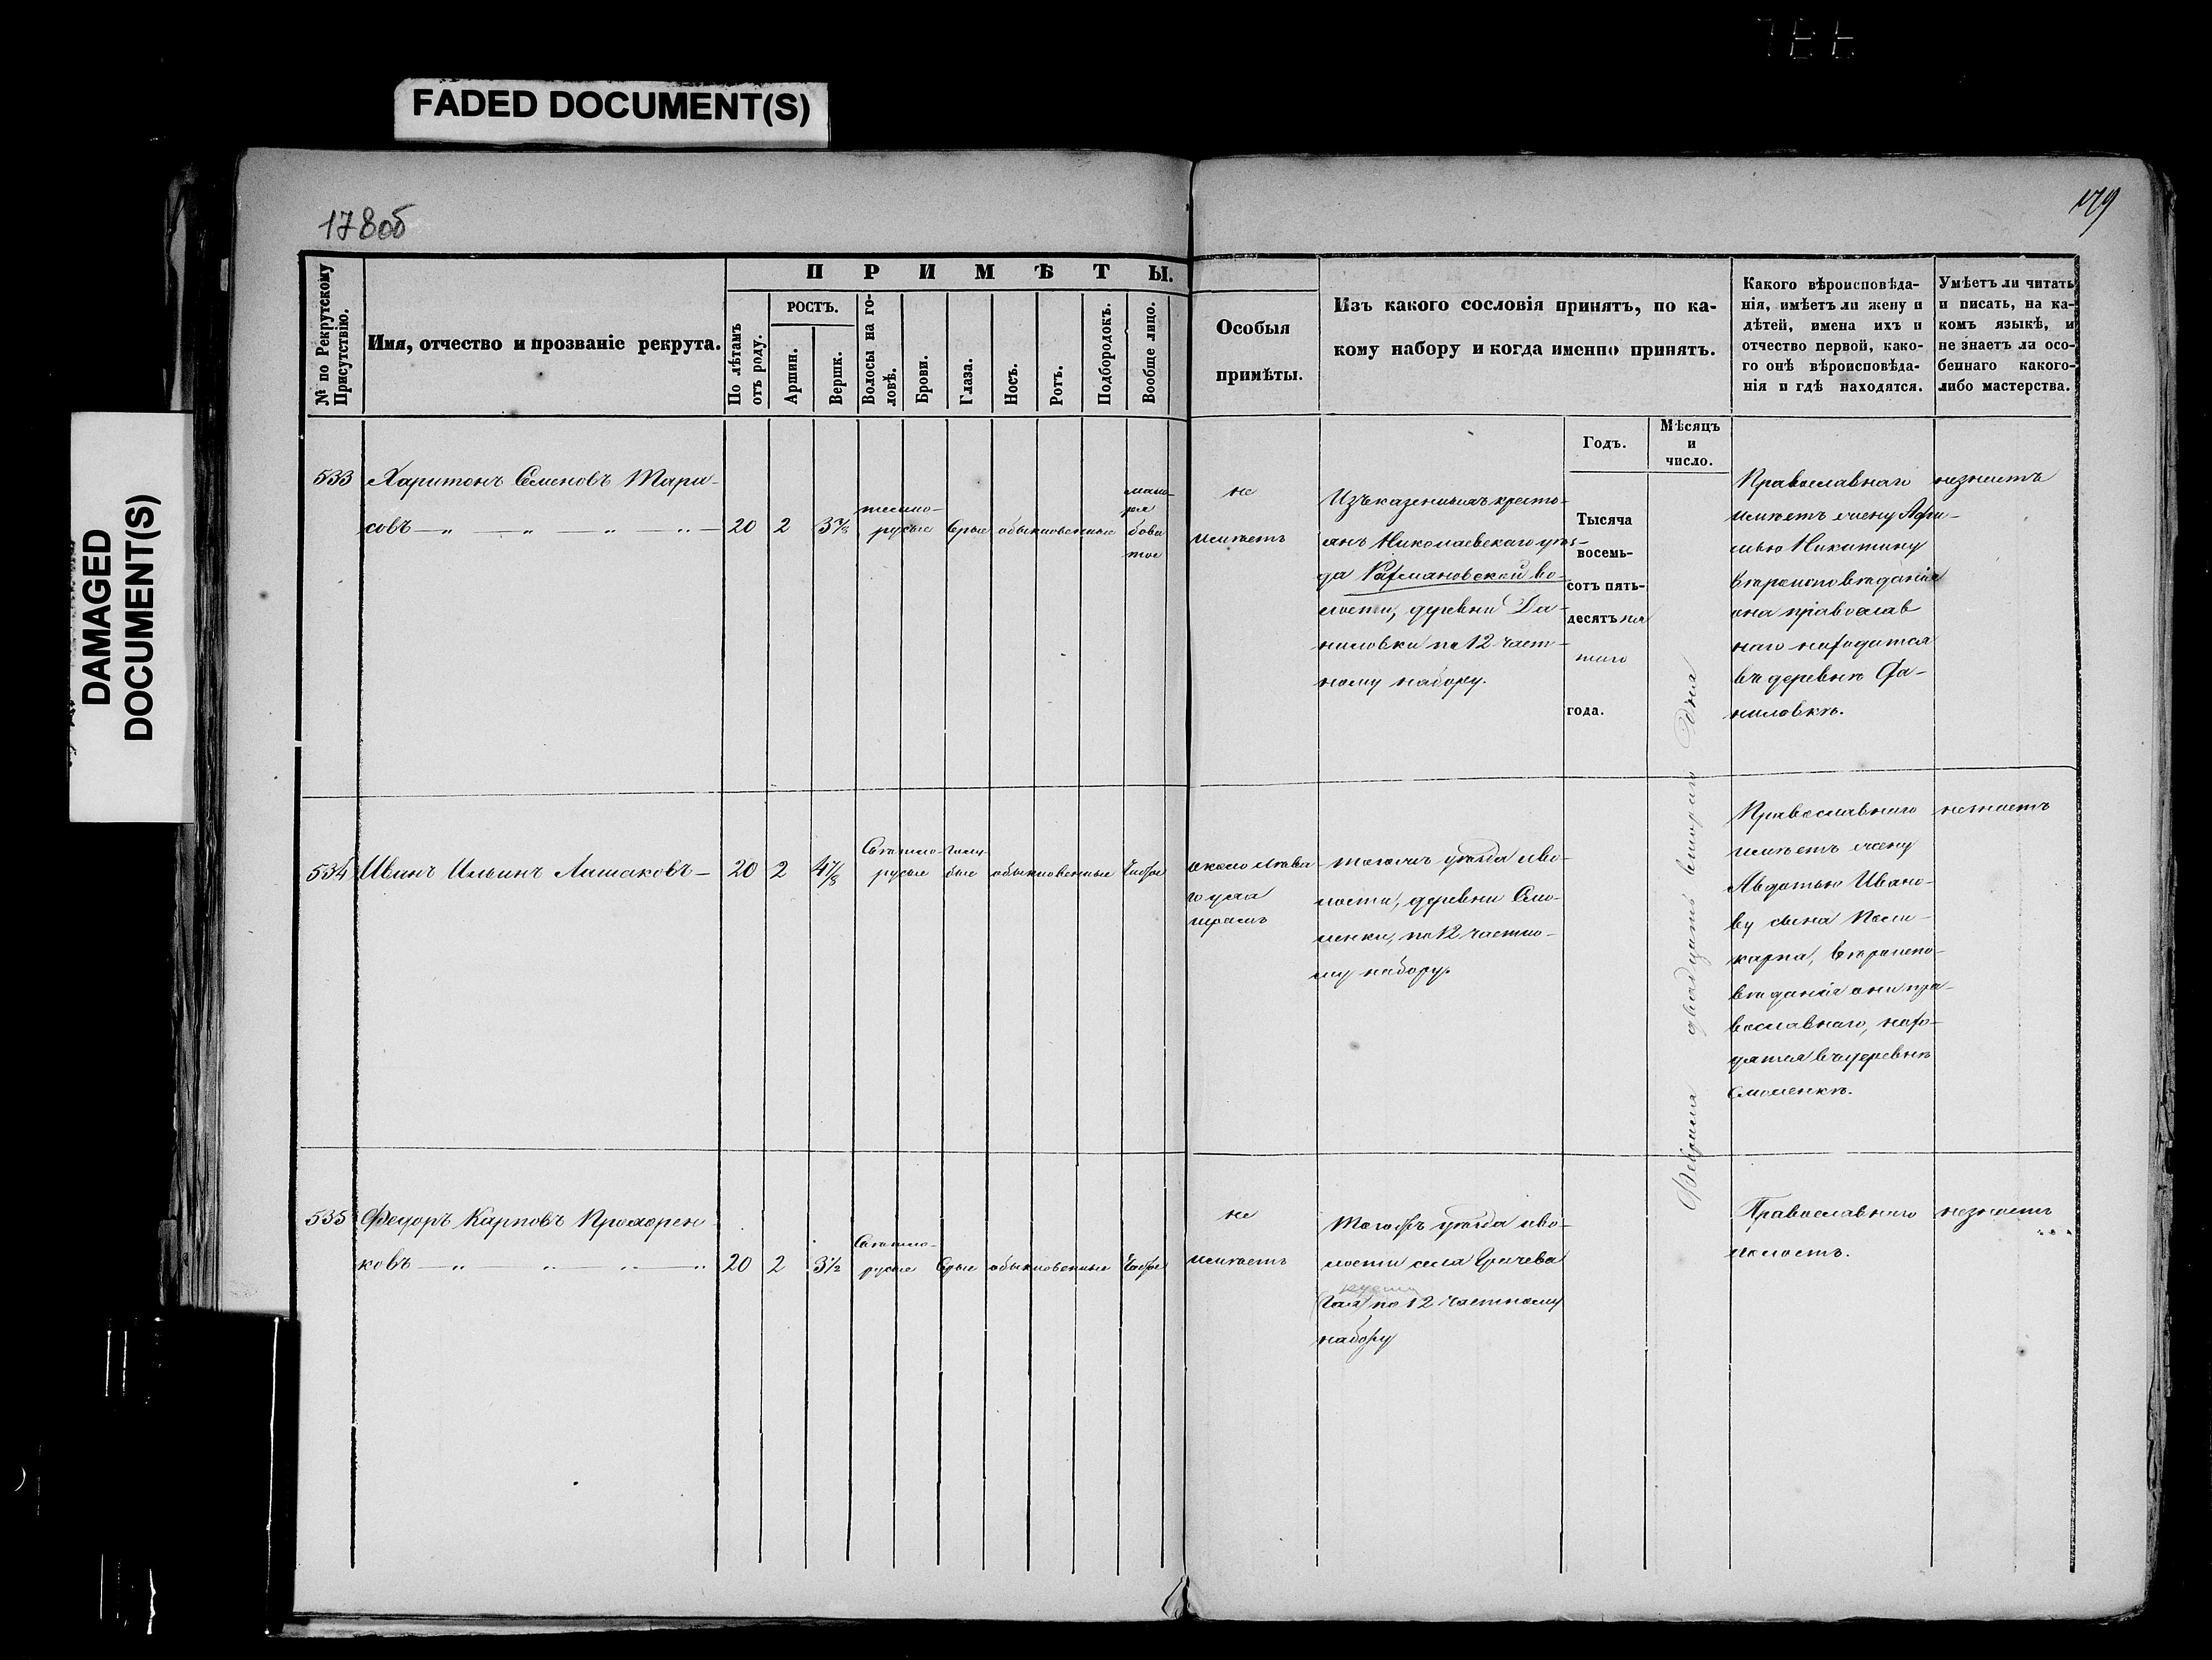 FADED DOCUMENT(S)
DAMAGED
DOCUMENT(S)
178об
179
№ по Рекрутскому
Присутствію.
Имя, отчество и прозваніе рекрута.
ПРИМѢТЫ.
По лѣтамъ
отъ роду.
РОСТЪ.
Аршин.
Вершк.
Волосы на го-
ловѣ.
Брови.
Глаза.
Носъ.
Ротъ.
Подбородокъ.
Вообще лицо.
Особыя
примѣты.
Изъ какого сословія принятъ, по ка-
кому набору и когда именно принятъ.
Годъ.
Мѣсяцъ
и
число.
Какого вѣроисповѣда-
нія, имѣетъ ли жену и
дѣтей, имена ихъ и
отчество первой, како-
го онѣ вѣроисповѣда-
нія и гдѣ находятся.
Умѣетъ ли читать
и писать, на ка-
комъ языкѣ, и
не знаетъ ли осо-
беннаго какого-
либо мастерства.
533
Харитонъ Семеновъ Тара-
совъ
20
2
3⅞
темно-
русые
серые
обыкновенные
не
имѣетъ
Изъ казенныхъ кресть-
янъ Николаевскаго уѣз-
да Рахмановской во-
лости, деревни Да-
ниловки по 12 част-
ному набору.
Тысяча
восемь-
сотъ пять-
десятъ пя
таго
года.
Февраля двадцать втораго дня
Православнаго
имѣетъ жену Афи-
мью Никитину
вѣроисповѣданія
она православ
наго находится
въ деревнѣ Да-
ниловкѣ.
незнаетъ
534
Иванъ Ильинъ Лашаковъ
20
2
4⅞
Свѣтло-
русые
голу-
бые
обыкновенные
Чистое
около лѣва
го уха
шрамъ
тогожъ уѣзда иво-
лости, деревни Смо-
ленки, по 12 частно-
му набору.
Православнаго
имѣетъ жену
Авдотью Ивано-
ву сына Поли-
карпа, вѣроиспо-
вѣданія они пра-
вославнаго, нахо-
дятся въ деревнѣ
Смоленкѣ.
незнаетъ
535
Федоръ Карповъ Прохорен
ковъ
20
2
3½
Свѣтло-
русые
Серые
обыкновенные
Чистое
не
имѣетъ
Тогожъ уѣзда иво-
лости села Грачева
по 12 частному
набору
Православнаго
холостъ.
незнаетъ